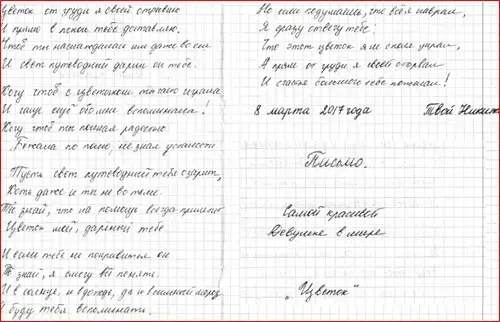 Цветок от груди я своей отрываю
И прямо в покои тебе доставлю.
Чтоб ты наслаждалась им даже во сне
И свет путеводный дарил он тебе.
Хочу чтоб с цветочком ты играла
И чаще ещё обо мне вспоминала!
Хочу чтоб ты полная радости
Бежала по полю, не зная усталости
Пусть свет путеводный тебя озарит,
Хоть даже и ты не во тьме.
Ты знай, что на помощь всегда прилетит
Цветок мой, дареный тебе
И если тебе не понравится он
Ты знай, я смогу всё понять.
И в солнце, и в дождь, да и в зимний мороз
Я буду тебя вспоминать.
Но если подумаешь, что всё я наврал,
Я сразу отвечу тебе:
Что этот цветок я не спал украл,
А прямо от груди я своей оторвал
И счастья большого тебе пожелал!
8 марта 2017 года Твой Никита
Письмо.
Самой красивой
Девушке в мире
„Цветок"